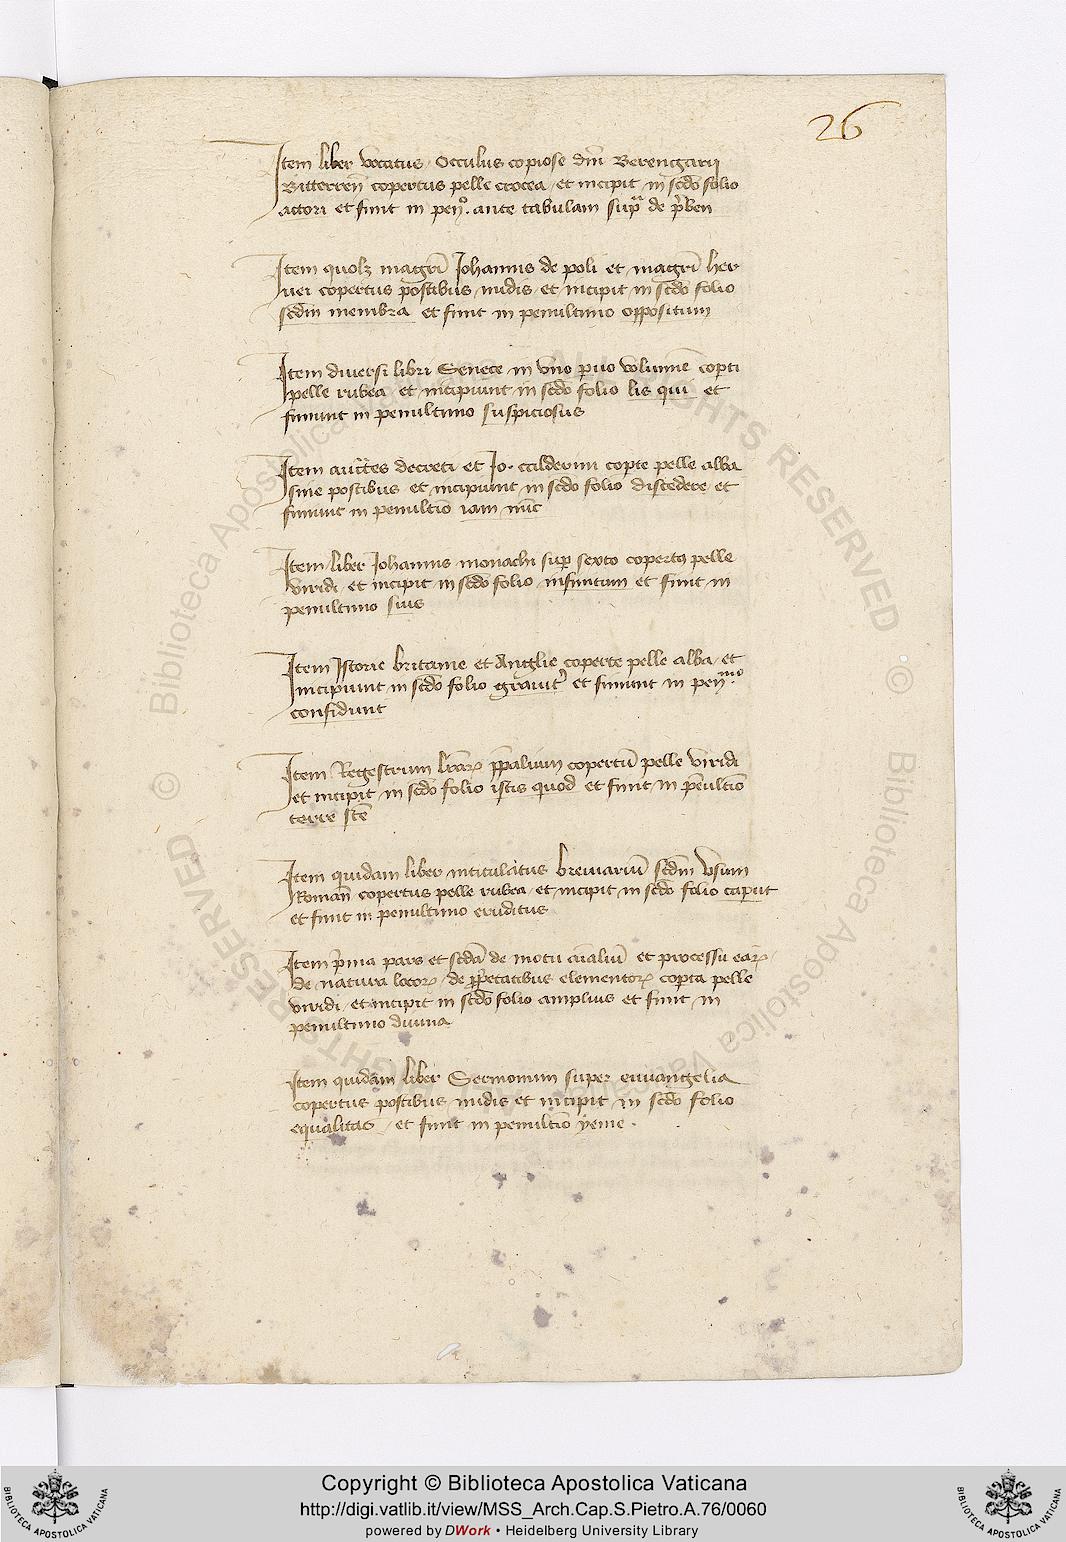 26
Item liber vocatus Occulus copiose dnī Berengarij
Bitterreñ copertus pelle crocea et incipit in scdo folio
actori et finit in penº. ante tabulam supª de p̄ben
Item quolz magrī Johannis de poli et magrī her
uei copertus postibus nudis et incipit in scdo folio
scdm membra et finit in penultimo oppositum
Item diuersi libri Senece in vno paruo volumīe copti
pelle rubea et incipiunt in scdo folio lis qui et
finiunt in penultimo suspiciosus
Item auctītes decreti et Jo. calderini copte pelle alba
sine postibus et incipiunt in scdo folio discedere et
finiunt in penultīo iam nūc
Item liber Johannis monachi sup sexto copertus pelle
viridi et incipit in scdo folio infinitum et finit in
penultimo suis
Item Istorie britanie et Anglie coperte pelle alba et
incipiunt in scdo folio grauit̉ et finiunt in penᵐᵒ
confidunt
Item Regestrum lrāꝝ pp̄alium copertū pelle viridi
et incipit in scdo folio istis quod et finit in pēultīo
terre scē
Item quidam liber intitulatus breuiariū scdm vsum
Romañ copertus pelle rubea et incipit in scdo folio caput
et finit in penultimo eruditus
Item p̄ma pars et scdā de motu aīaliū et processu eaꝝ
de natura locoꝝ de p̄p̄etatibus elementoꝝ copta pelle
viridi et incipit in scdo folio amplius et finit in
penultimo diuina
Item quidam liber Sermonum super euuangelia
copertus postibus nudis et incipit in scdo folio
equalitas et finit in penultīo yeme.
© Biblioteca Apostolica Vaticana ALL RIGHTS RESERVED
© Biblioteca Apostolica Vaticana ALL RIGHTS RESERVED
Copyright © Biblioteca Apostolica Vaticana
http://digi.vatlib.it/view/MSS_Arch.Cap.S.Pietro.A.76/0060
powered by DWork • Heidelberg University Library
BIBLIOTECA APOSTOLICA VATICANA
BIBLIOTECA APOSTOLICA VATICANA